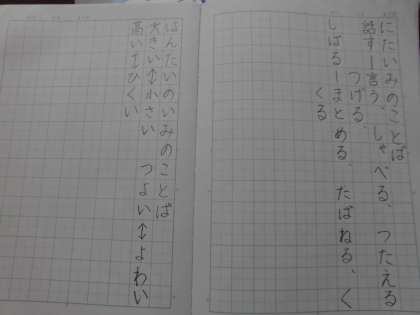 にたいみのことば
話す－言う、しゃべる、つたえる
つげる、
しばる－まとめる、たばねる、く
くる
はんたいのいみのことば
大きい↕小さい つよい↕よわい
高い↕ひくい